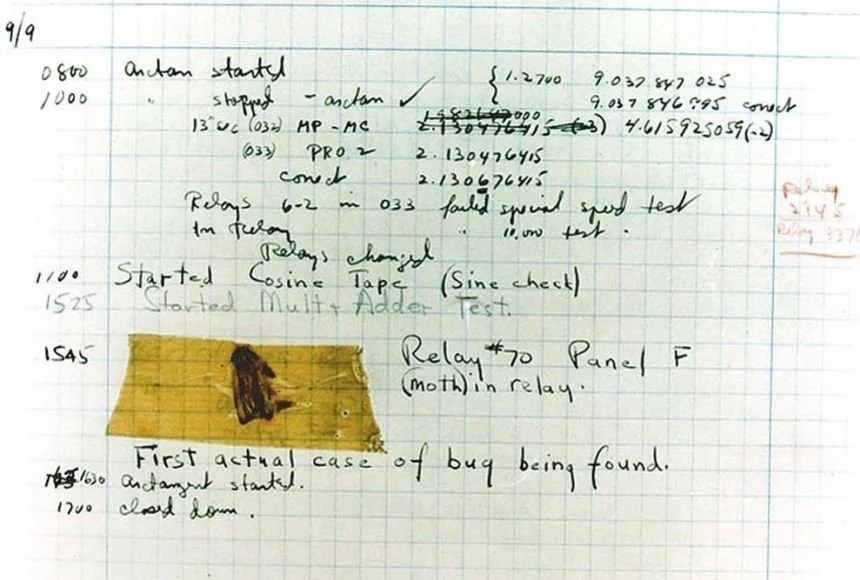 9/9
0800 arctan started { 1.2700 9.037 847 025
1000 " stopped - arctan ✓ 9.037 846 995 correct
(032) MP - MC 2.130476415 4.615925059(-2)
(033) PRO 2 2.130476415
correct 2.130676415
Relays 6-2 in 033 failed special speed test
In relay " 10.000 test .
Relay
2145
Relay 3370
Relays changed
1100 Started Cosine Tape (Sine check)
1525 Started Mult + Adder Test.
1545 Relay #70 Panel F
(moth) in relay.
First actual case of bug being found.
1630 arctangent started.
1700 closed down.